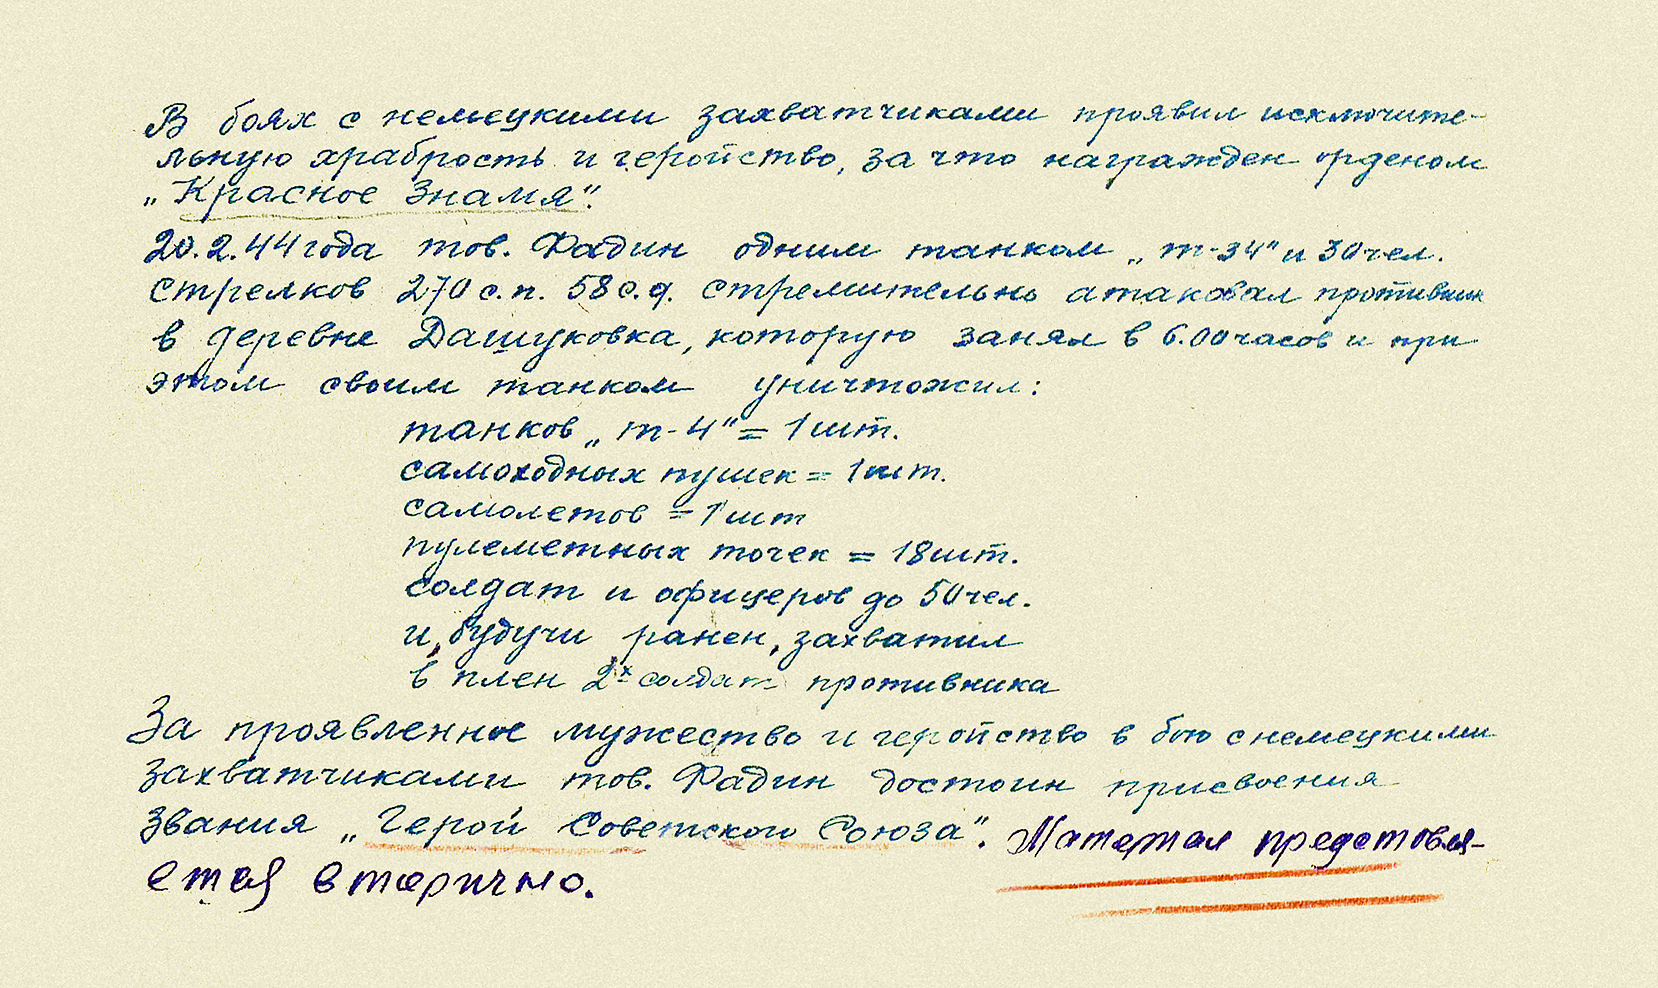 В боях с немецкими захватчиками проявил исключите-
льную храбрость и геройство, за что награжден орденом
„Красное Знамя“.
20.2.44 года тов. Фадин одним танком „т-34“ и 30 чел.
стрелков 270 с.п. 58 с.д. стремительно атаковал противник
в деревне Дашуковка, которую занял в 6.00 часов и при
этом своим танком уничтожил:
танков „т-4“ = 1 шт.
самоходных пушек = 1 шт.
самолетов = 1 шт
пулеметных точек = 18 шт.
солдат и офицеров до 50 чел.
и, будучи ранен, захватил
в плен 2х солдат противника
За проявленное мужество и геройство в бою с немецкими
захватчиками тов. Фадин достоин присвоения
звания „Герой Советского Союза“. Материал представля-
ется вторично.